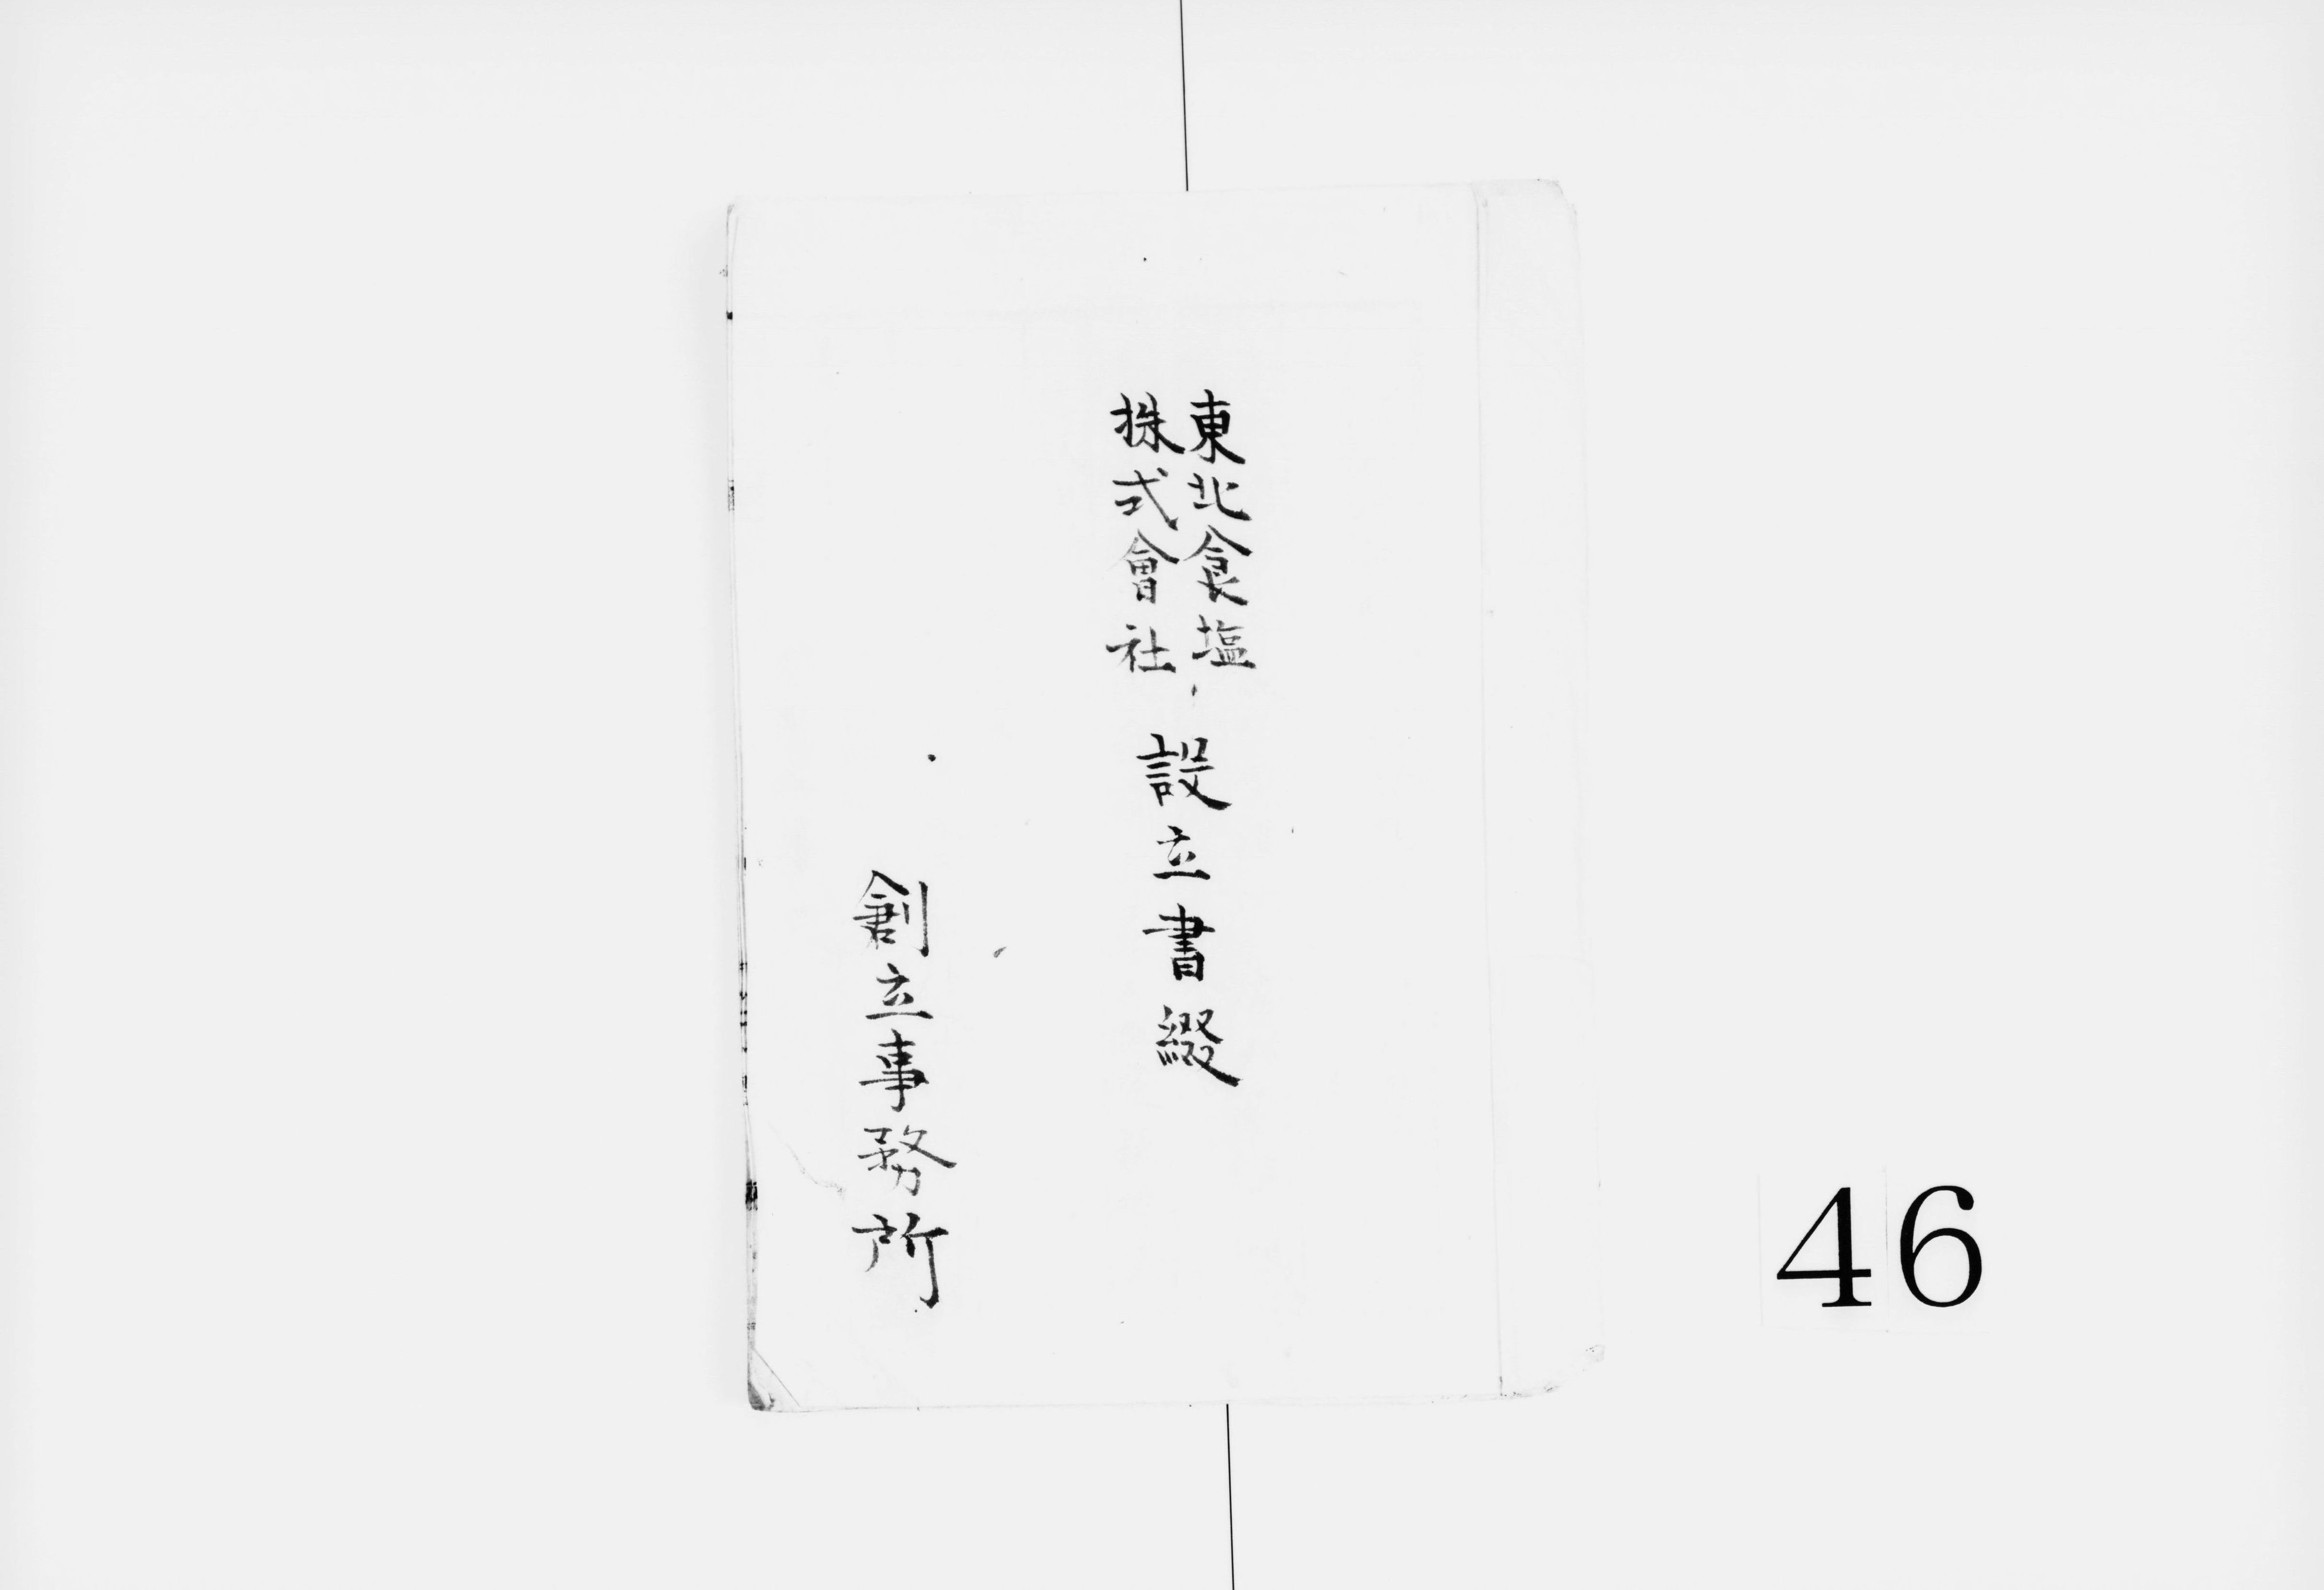 東北食塩
株式會社
設立書綴
創立事務所
46